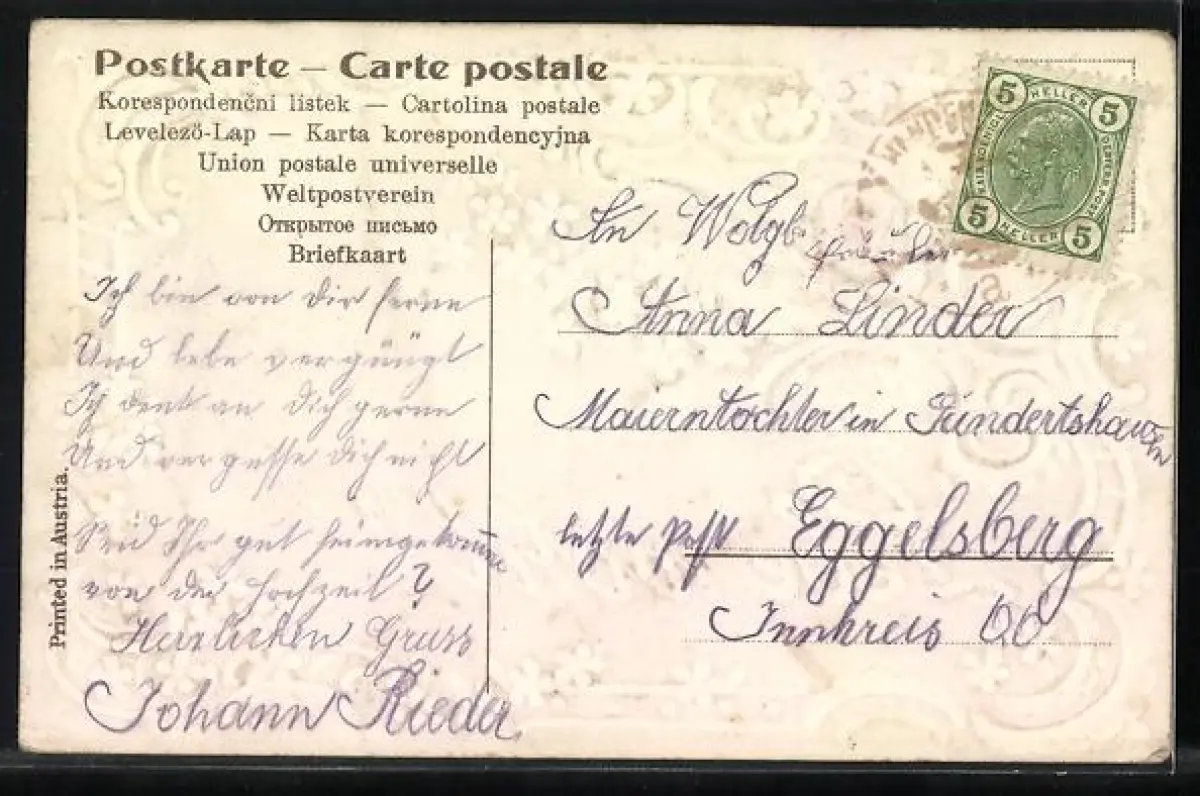 Postkarte – Carte postale
Korespondenčni listek — Cartolina postale
Levelező-Lap — Karta korespondencyjna
Union postale universelle
Weltpostverein
Открытое письмо
Briefkaart
Ich bin von dir ferne
Und lebe vergnügt
Ich denk an dich gerne
Und vergesse dich nicht
Seid Ihr gut heimgekommen
von der Hochzeit?
Herzlichen Gruss
Johann Rieder
Printed in Austria.
5 HELLER 5
5 HELLER 5
An Wolgb. Fräulein
Anna Linder
Maierntochter in Gundertshausen
letzte Post Eggelsberg
Innkreis OÖ